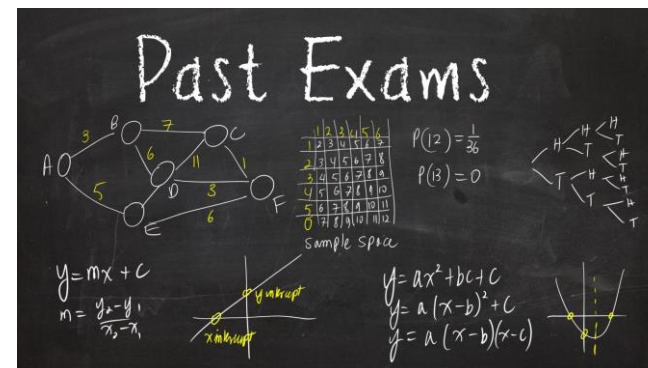 Past Exams
B 7 C
3 6 11 1
A D 3 F
5 E 6
1 2 3 4 5 6
1 2 3 4 5 6 7
2 3 4 5 6 7 8
3 4 5 6 7 8 9
4 5 6 7 8 9 10
5 6 7 8 9 10 11
0 7 8 9 10 11 12
sample space
P(12) = 1/36
P(13) = 0
H H H
T
T H
T
T H H
T
T H
T
y = mx + c
m = y₂-y₁/x₂-x₁
y intercept
x intercept
y = ax² + bc + c
y = a(x-b)² + c
y = a(x-b)(x-c)